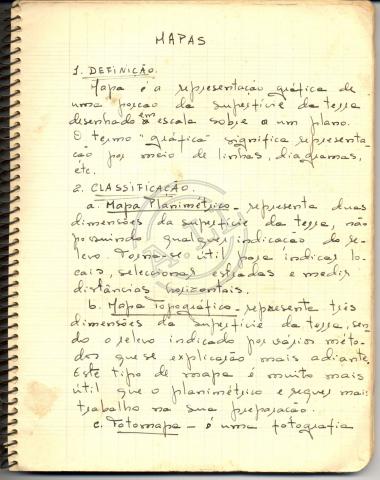 MAPAS
1. DEFINIÇÃO.
Mapa é a representação gráfica de
uma porção da superfície da terra
desenhado em escala sobre um plano.
O termo "gráfica" significa representa-
ção por meio de linhas, diagramas,
etc.
2. CLASSIFICAÇÃO.
a. Mapa Planimétrico - representa duas
dimensões da superfície da terra, não
possuindo qualquer indicação do re-
levo. Torna-se útil para indicar lo-
cais, selecionar estradas e medir
distâncias horizontais.
b. Mapa Topográfico - representa três
dimensões da superfície da terra, sen-
do o relevo indicado por vários méto-
dos que se explicação mais adiante.
Este tipo de mapa é muito mais
útil que o planimétrico e requer mais
trabalho na sua preparação.
c. Fotomapa - é uma fotografia